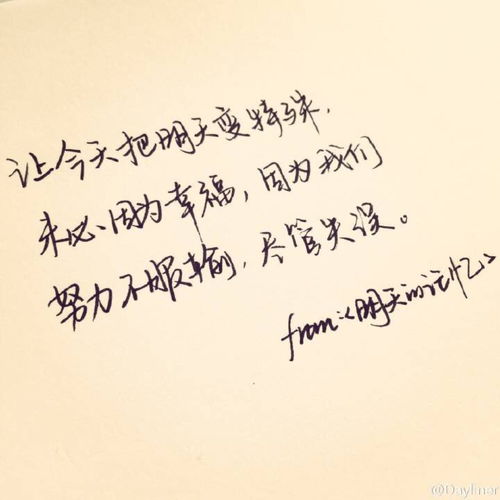 让今天把明天变特殊，
未必因为幸福，因为我们
努力不服输，尽管失误。
from:《明天的记忆》
@Dayliner